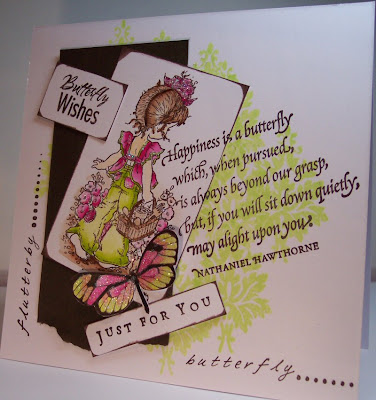 Butterfly
Wishes
Happiness is a butterfly
which, when pursued,
is always beyond our grasp,
but, if you will sit down quietly,
may alight upon you.
NATHANIEL HAWTHORNE
JUST FOR YOU
flutterby........
butterfly.......